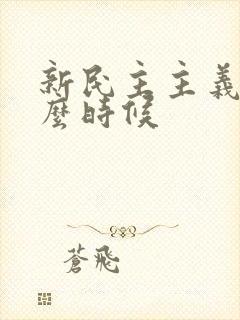 新民主主義
麼時候
蒼飛